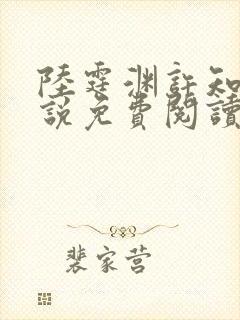 陸霆淵許知
說免費閱讀
裴家营